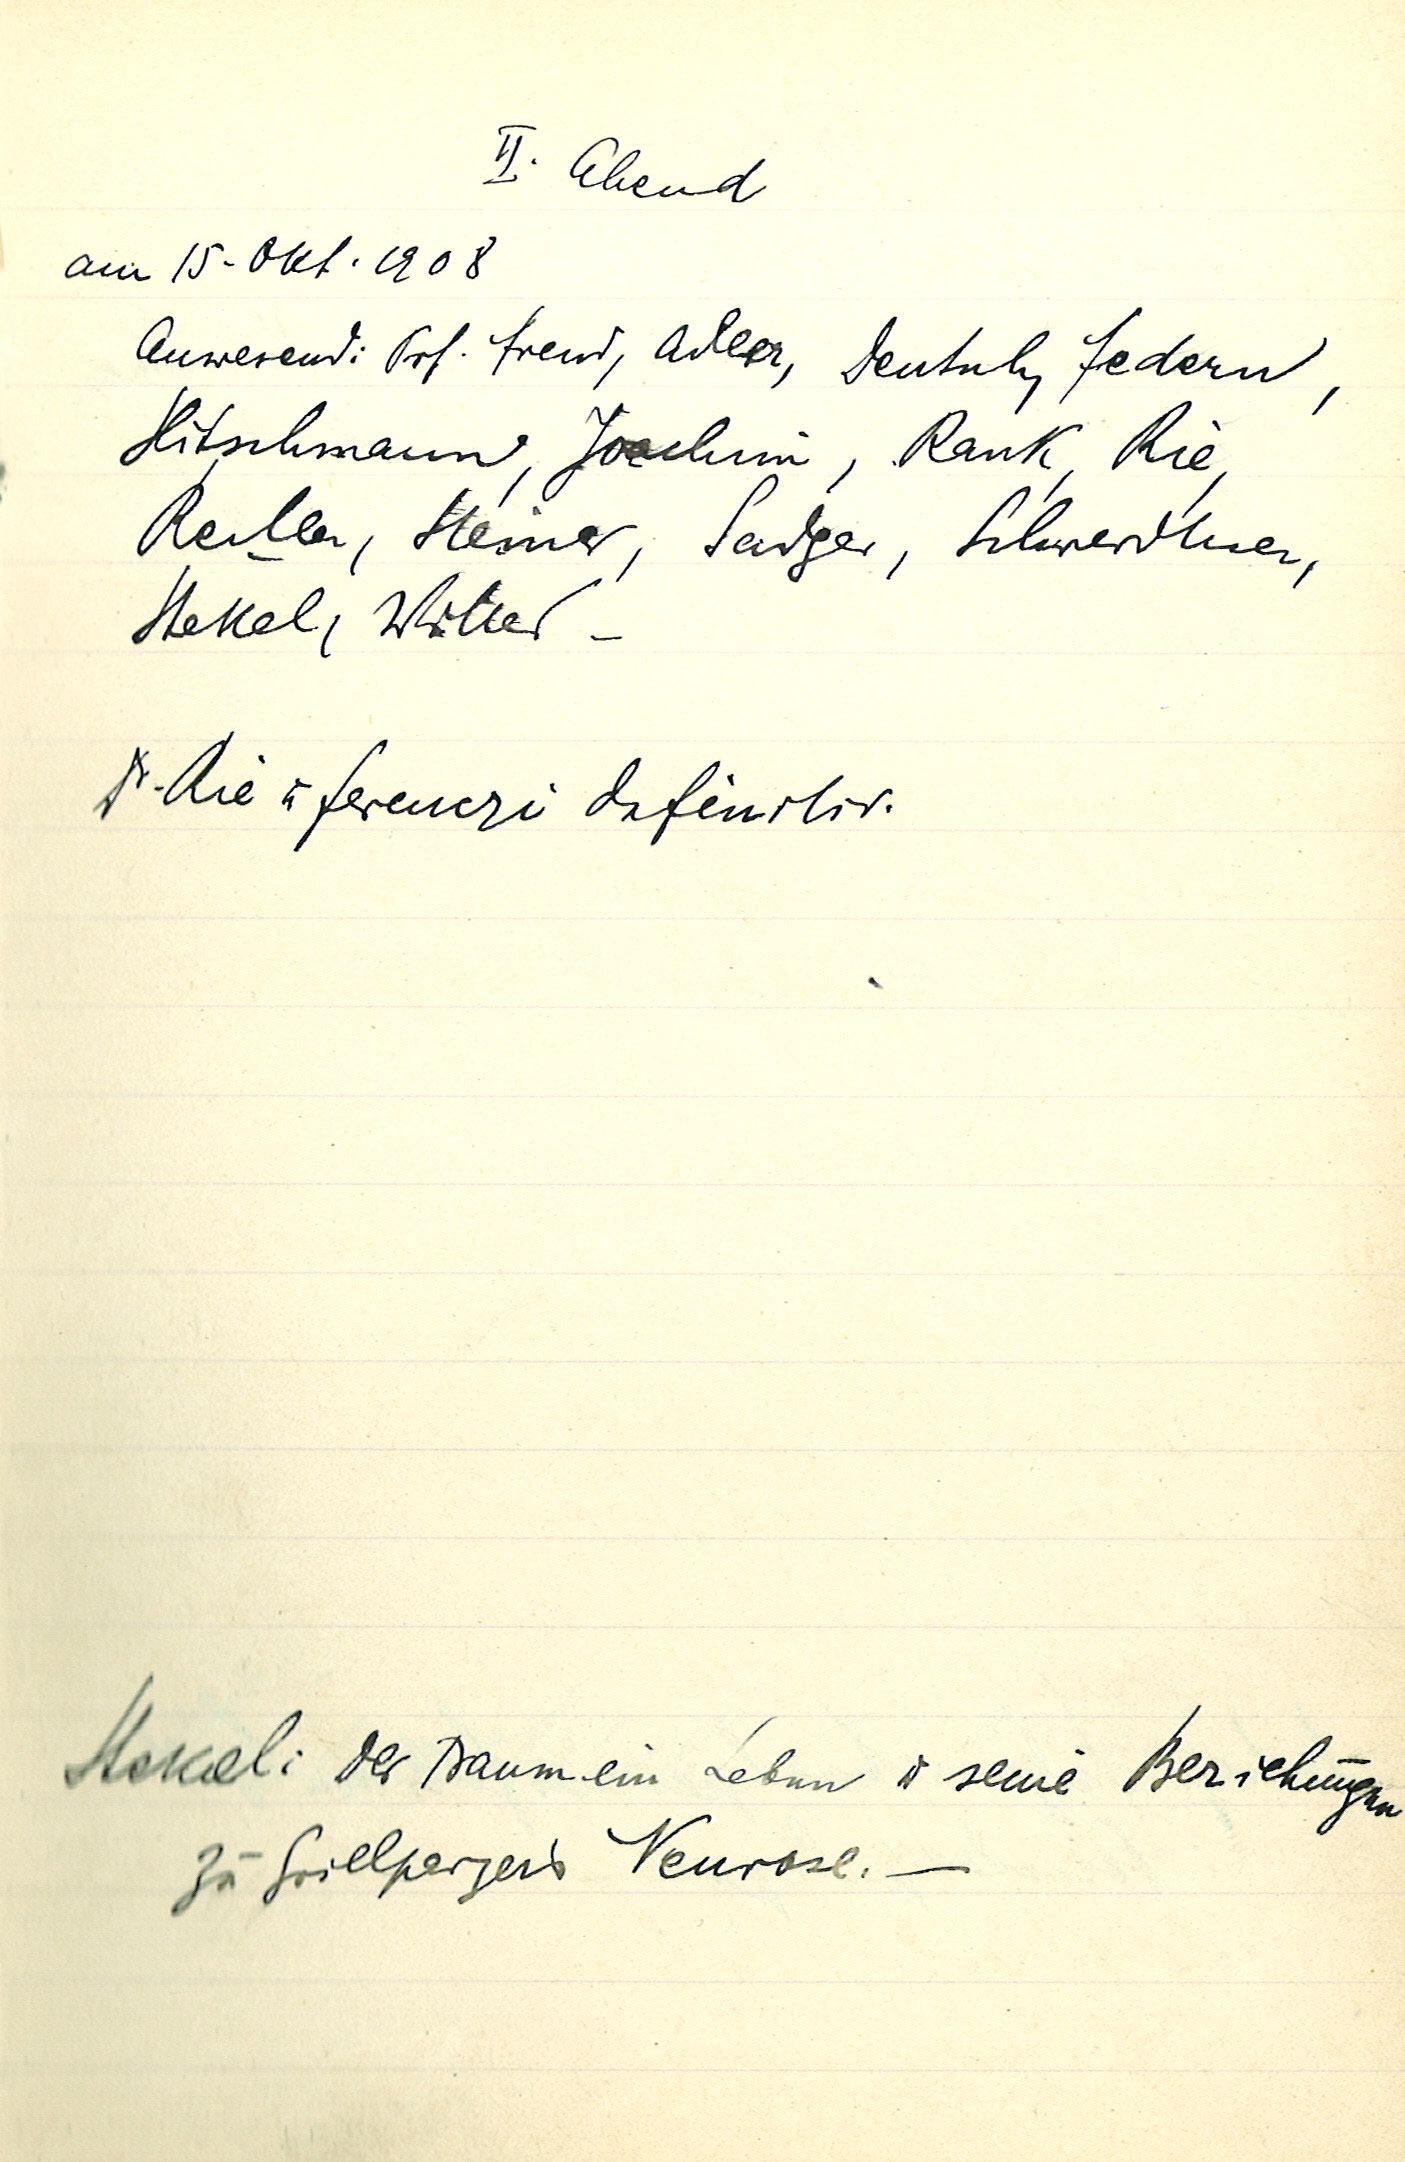 II. Abend
am 15. Okt. 1908
Anwesend: Prf. Freud, Adler, Deutsch, Federn,
Hitschmann, Joachim, Rank, Rie,
Reitler, Steiner, Sadger, Schwerdtner,
Stekel, Wittels –
Dr. Rie u Ferenczi definitiv.
Stekel: Der Traum ein Leben u seine Beziehungen
zu Grillparzers Neurose. —